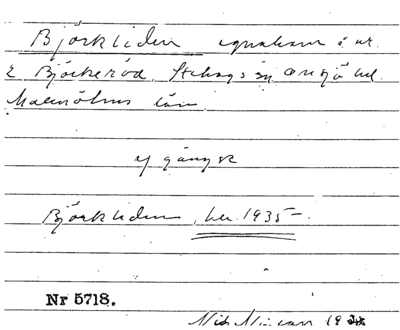 Björkliden egnahem å nr.
2 Björkeröd, Stehags sn Onsjö hd.
Malmöhus län
ej gängse
Björkliden, bel. 1935–.
Nr 5718.
Nils